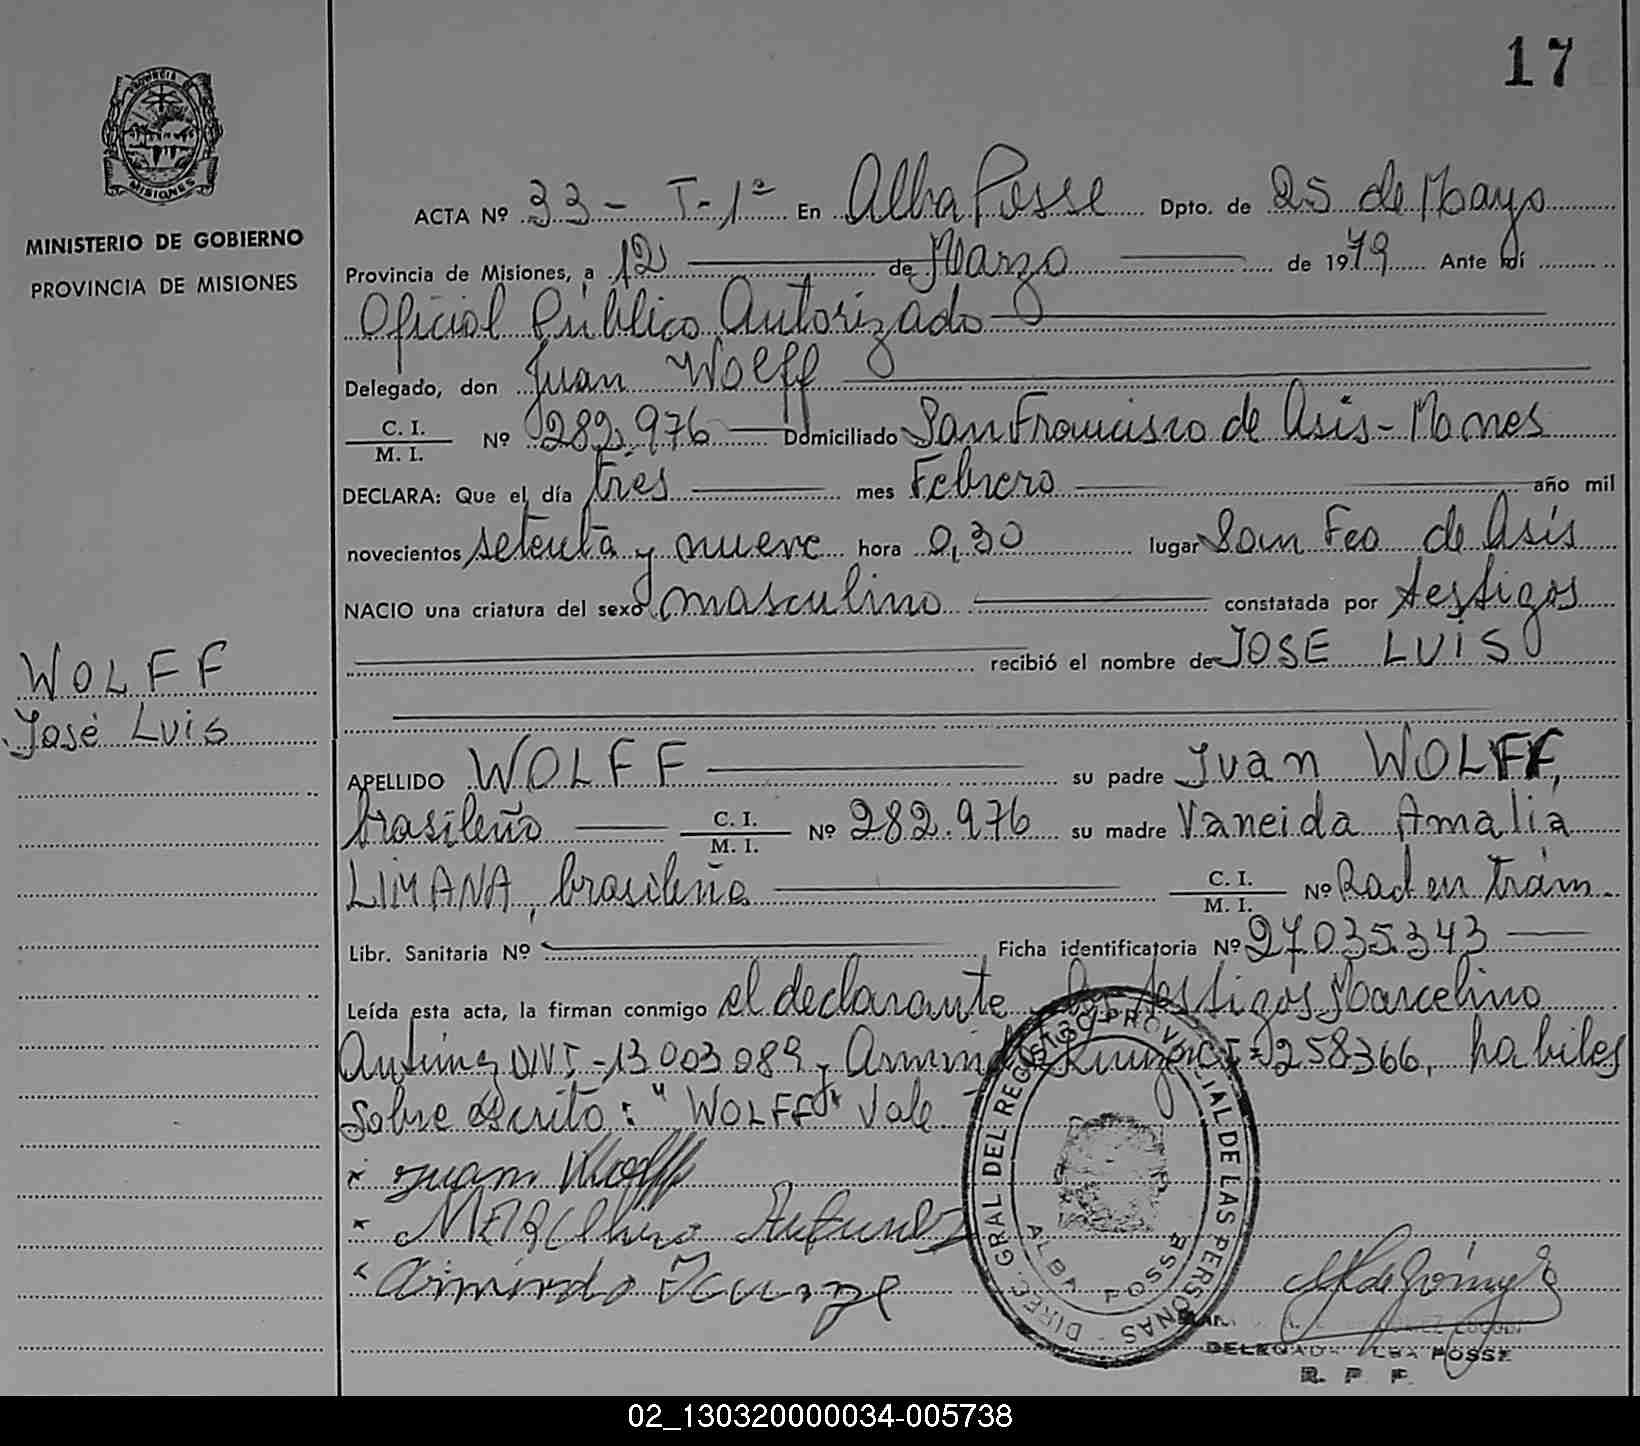 17
PROVINCIA DE
MISIONES
MINISTERIO DE GOBIERNO
PROVINCIA DE MISIONES
WOLFF
José Luis
ACTA Nº 33 - T-1ª En Alba Posse Dpto. de 25 de Mayo
Provincia de Misiones, a 12 de Marzo de 1979 Ante mí
Oficial Público Autorizado
Delegado, don Juan Wolff
C. I.
M. I. Nº 282.976 Domiciliado San Francisco de Asis - Mnes
DECLARA: Que el día tres mes Febrero año mil
novecientos setenta y nueve hora 0,30 lugar San Fco de Asís
NACIO una criatura del sexo masculino constatada por testigos
recibió el nombre de JOSE LUIS
APELLIDO WOLFF su padre Juan WOLFF,
brasileño C. I.
M. I. Nº 282.976 su madre Vaneida Amalia
LIMANA, brasileña C. I.
M. I. Nº Rad en trám.
Libr. Sanitaria Nº Ficha identificatoria Nº 27.035.343
Leída esta acta, la firman conmigo el declarante y los testigos Marcelino
Antúnez DNI - 13003089 y Armindo CI = 258366, habiles
Sobre escrito: "WOLFF" Vale
x Juan Wolff
x Marcelino Antunez
x Armindo
DIREC. GRAL DEL REGISTRO PROVINCIAL DE LAS PERSONAS
ALBA POSSE
DELEGADA ALBA POSSE
R. P. P.
02_130320000034-005738